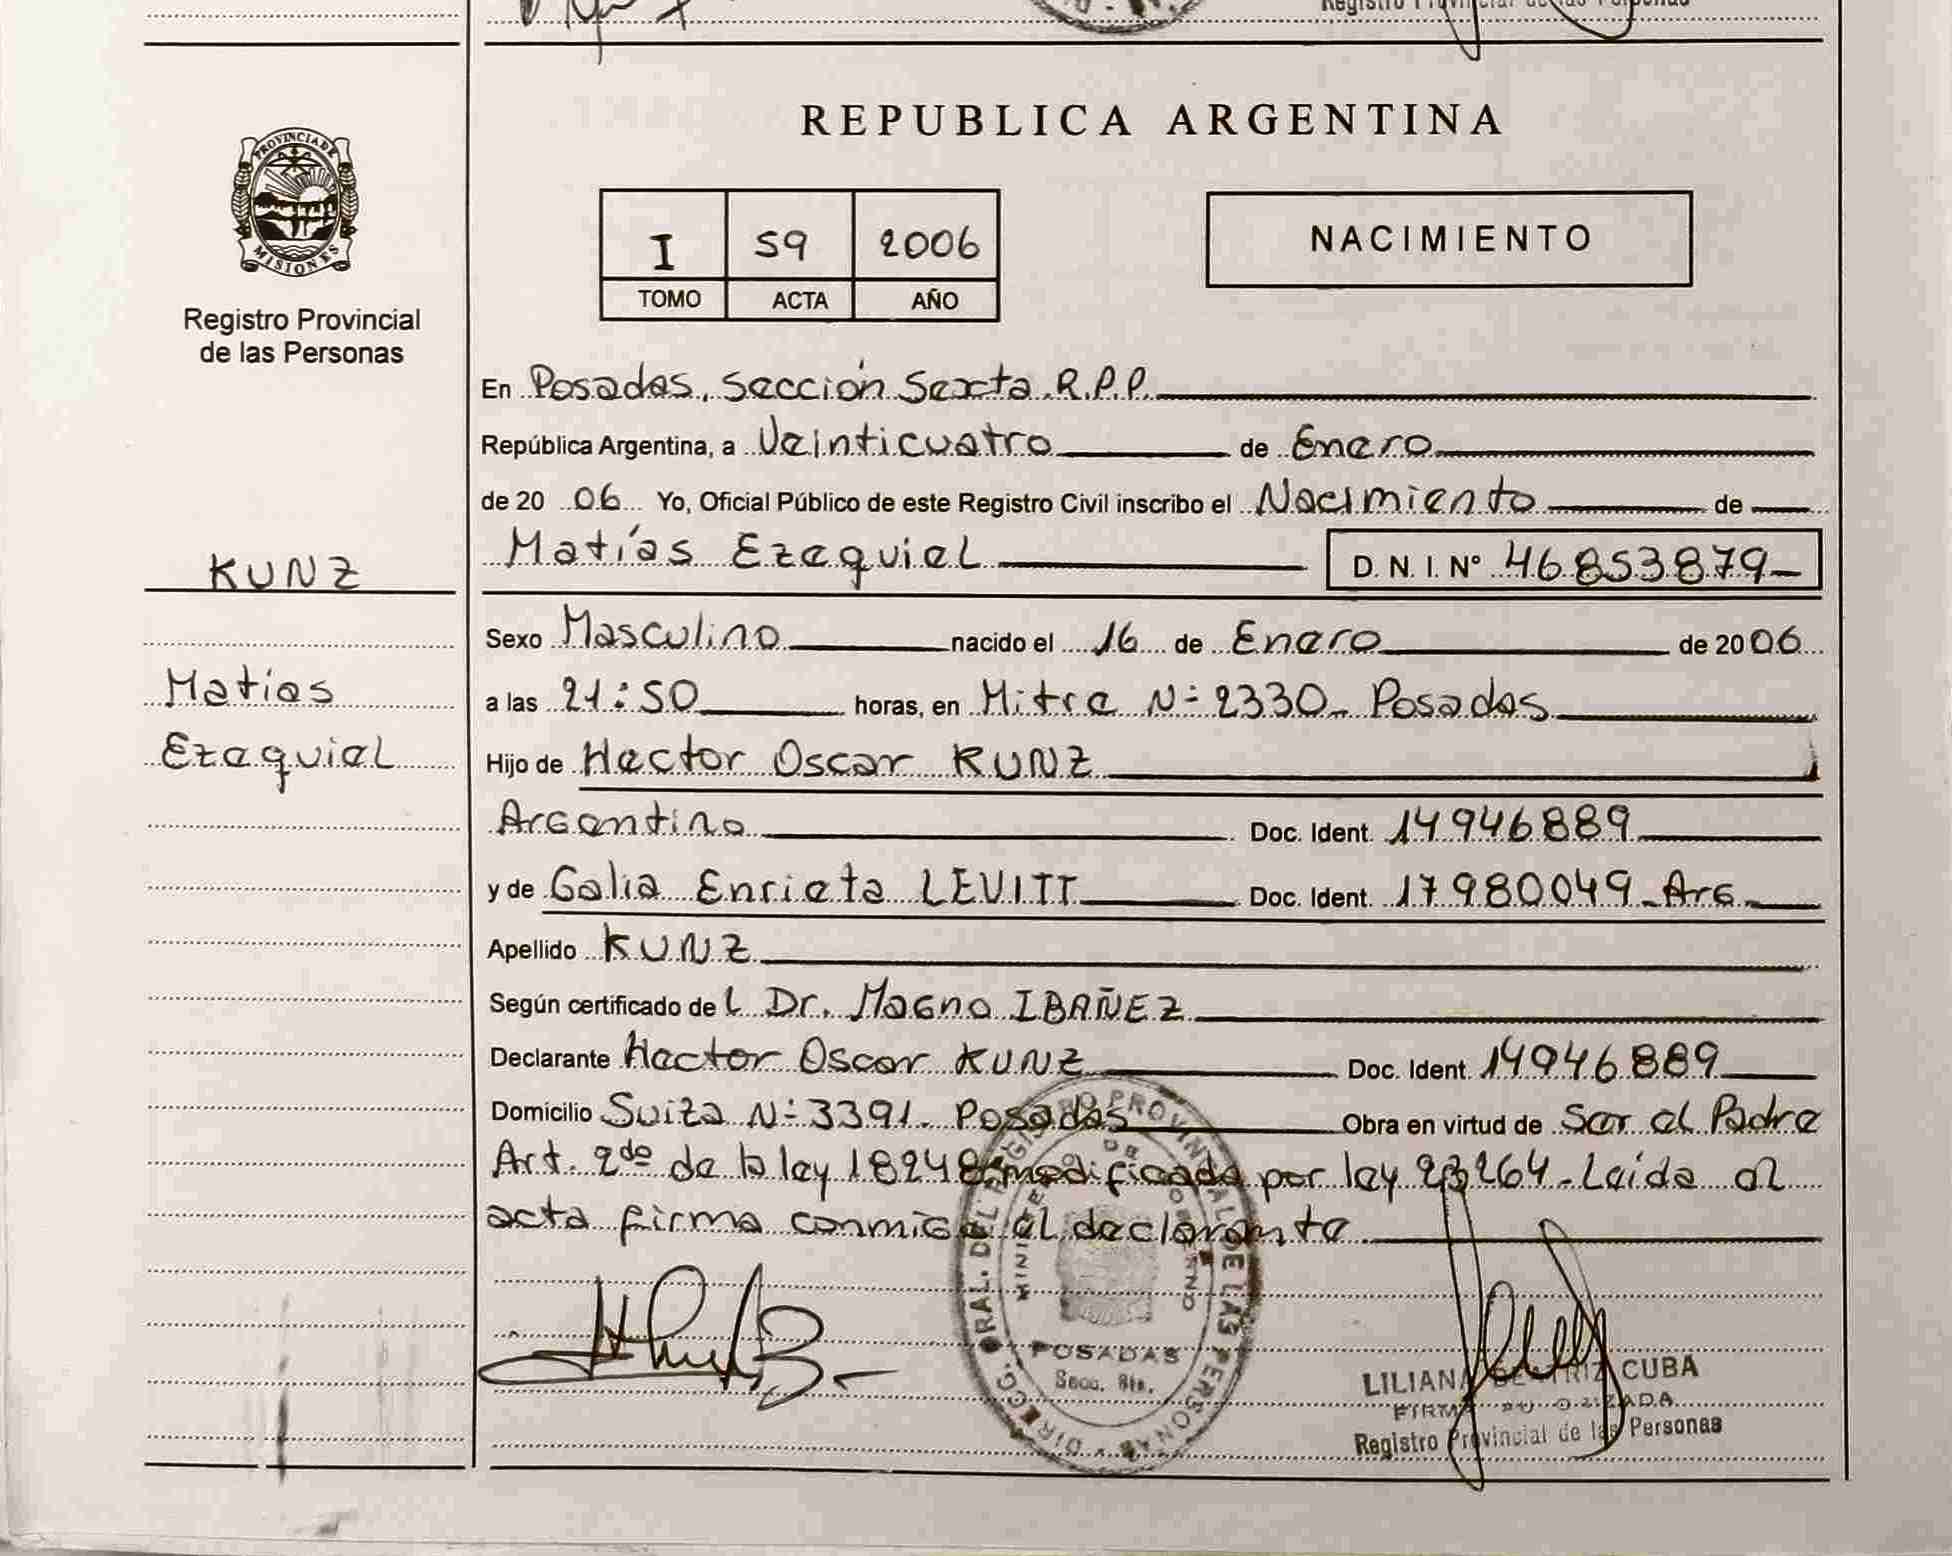 Registro Provincial de las Personas
REPUBLICA ARGENTINA
PROVINCIA DE
MISIONES
Registro Provincial
de las Personas
I 59 2006
TOMO ACTA AÑO
NACIMIENTO
En Posadas, Sección Sexta R.P.P.
República Argentina, a Veinticuatro de Enero
de 2006 Yo, Oficial Público de este Registro Civil inscribo el Nacimiento de
Matías Ezequiel D.N.I. Nº 46.853.879
KUNZ
Matías
Ezequiel
Sexo Masculino nacido el 16 de Enero de 2006
a las 21:50 horas, en Mitre Nº 2330 - Posadas
Hijo de Hector Oscar KUNZ
Argentino Doc. Ident. 14946889
y de Galia Enrieta LEVITT Doc. Ident. 17980049 - Arg.
Apellido KUNZ
Según certificado del Dr. Magno IBAÑEZ
Declarante Hector Oscar KUNZ Doc. Ident. 14946889
Domicilio Suiza Nº 3391. Posadas Obra en virtud de Ser el Padre
Art. 2do de la ley 18248 modificada por ley 23264 - Leida el
acta firma conmigo el declarante
DIRECC. GRAL. DEL REGISTRO PROVINCIAL DE LAS PERSONAS
POSADAS
Secc. 6ta.
LILIANA BEATRIZ CUBA
FIRMA AUTORIZADA
Registro Provincial de las Personas